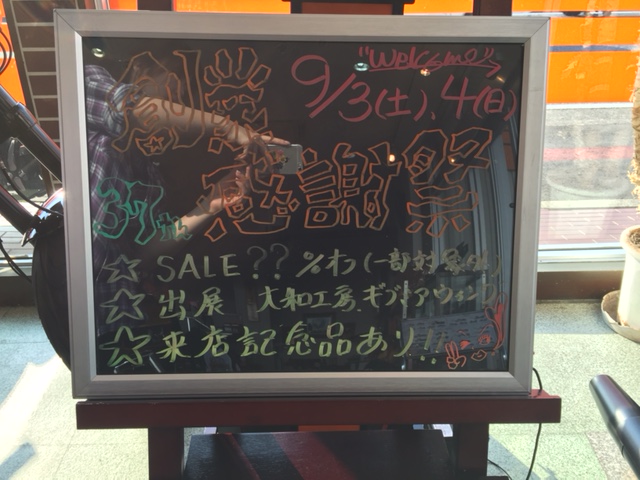 "Welcome"
9/3(土)、4(日)
創業
感謝祭
37th
☆ SALE?? %オフ(一部対象外)
☆ 出展 大和工房、ギブトアウィング
☆ 来店記念品あり!!